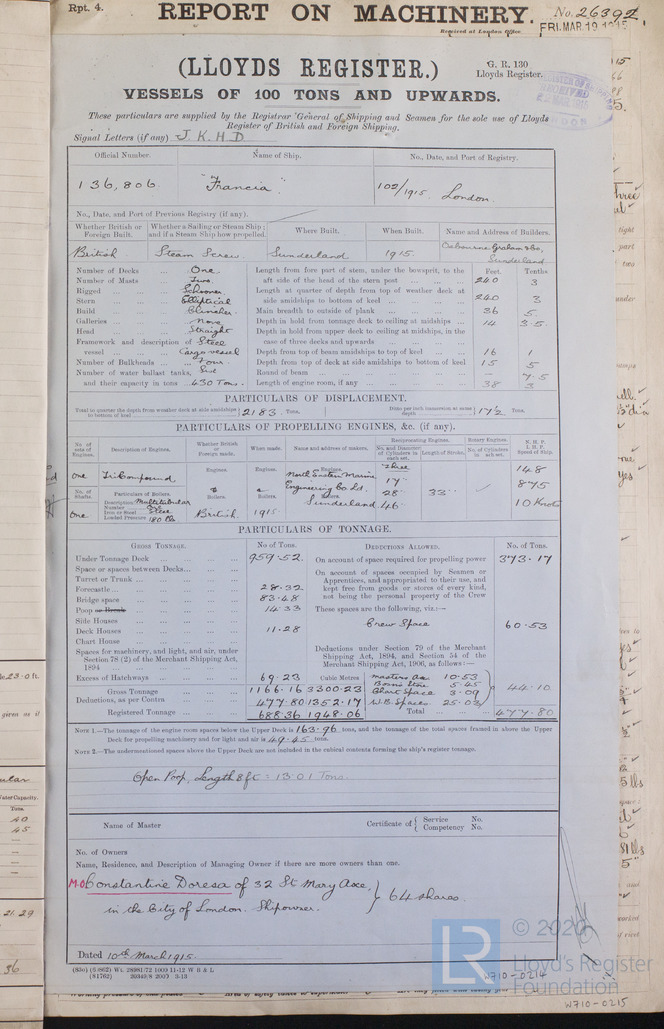 Rpt. 4.
REPORT ON MACHINERY.
No. 26392
Received at London Office
FRI. MAR. 19 1915
(LLOYDS REGISTER.)
G. R. 130
Lloyds Register.
VESSELS OF 100 TONS AND UPWARDS.
These particulars are supplied by the Registrar General of Shipping and Seamen for the sole use of Lloyds
Register of British and Foreign Shipping.
Signal Letters (if any) J. K. H. D
Official Number. Name of Ship. No., Date, and Port of Registry.
136,806 "Francia" 102/1915 London.
No., Date, and Port of Previous Registry (if any).
Whether British or Foreign Built. Whether a Sailing or Steam Ship; and if a Steam Ship how propelled. Where Built. When Built. Name and Address of Builders.
British Steam Screw. Sunderland 1915. Osbourne Graham & Co, Sunderland
Feet. Tenths
Number of Decks ... One.
Number of Masts ... Two.
Rigged ... Schooner
Stern ... Elliptical
Build ... Clincher
Galleries ... None
Head ... Straight
Framework and description of vessel ... Steel Cargo vessel
Number of Bulkheads ... Four.
Number of water ballast tanks, and their capacity in tons ... 430 Tons.
Length from fore part of stem, under the bowsprit, to the aft side of the head of the stern post 240 3
Length at quarter of depth from top of weather deck at side amidships to bottom of keel 240 3
Main breadth to outside of plank 36 5.
Depth in hold from tonnage deck to ceiling at midships 14 3.5.
Depth in hold from upper deck to ceiling at midships, in the case of three decks and upwards
Depth from top of beam amidships to top of keel 16 1
Depth from top of deck at side amidships to bottom of keel 15 5
Round of beam 7.5
Length of engine room, if any 38 3
PARTICULARS OF DISPLACEMENT.
Total to quarter the depth from weather deck at side amidships to bottom of keel 2183. Tons. Ditto per inch immersion at same depth 17½ Tons.
PARTICULARS OF PROPELLING ENGINES, &c. (if any).
No. of sets of Engines. Description of Engines. Whether British or Foreign made. When made. Name and address of makers. Reciprocating Engines. Rotary Engines. N. H. P. I. H. P. Speed of Ship.
No. and Diameter of Cylinders in each set. Length of Stroke. No. of Cylinders in each set.
One Tri Compound. Engines. Engines. Engines. North Eastern Marine Engineering Co Ld. Sunderland Three 17" 28" 46" 33" 148 875 10 Knots
No. of Shafts. Particulars of Boilers. Boilers. Boilers. Boilers.
One Description Multitubular
Number One
Iron or Steel Steel
Loaded Pressure 180 lbs
British. 1915
PARTICULARS OF TONNAGE.
GROSS TONNAGE. No of Tons. DEDUCTIONS ALLOWED. No. of Tons.
Under Tonnage Deck 959.52.
Space or spaces between Decks
Turret or Trunk
Forecastle 28.32
Bridge space 83.48
Poop or Break 14.33
Side Houses
Deck Houses 11.28
Chart House
Spaces for machinery, and light, and air, under Section 78 (2) of the Merchant Shipping Act, 1894
Excess of Hatchways 69.23
Cubic Metres
Gross Tonnage 1166.16 3300.23
Deductions, as per Contra 477.80 1352.17
Registered Tonnage 688.36 1948.06
On account of space required for propelling power 373.17
On account of spaces occupied by Seamen or Apprentices, and appropriated to their use, and kept free from goods or stores of every kind, not being the personal property of the Crew
These spaces are the following, viz:—
Crew Space 60.53
Deductions under Section 79 of the Merchant Shipping Act, 1894, and Section 54 of the Merchant Shipping Act, 1906, as follows:—
Masters acc 10.53
Bosns Store 5.45
Chart Space 3.09
W.B. Spaces 25.03
44.10
Total 477.80
NOTE 1.—The tonnage of the engine room spaces below the Upper Deck is 163.96 tons, and the tonnage of the total spaces framed in above the Upper
Deck for propelling machinery and for light and air is 49.45 tons.
NOTE 2.—The undermentioned spaces above the Upper Deck are not included in the cubical contents forming the ship's register tonnage.
Open Poop, Length 8 ft = 13.01 Tons.
Name of Master
Certificate of { Service No. Competency No.
No. of Owners
Name, Residence, and Description of Managing Owner if there are more owners than one.
M.O. Constantine Doresa of 32 St Mary Axe,
in the City of London. Shipowner.
} 64 shares.
Dated 10th March 1915.
© 2020
LR Lloyd's Register Foundation
W710-0214
W710-0215